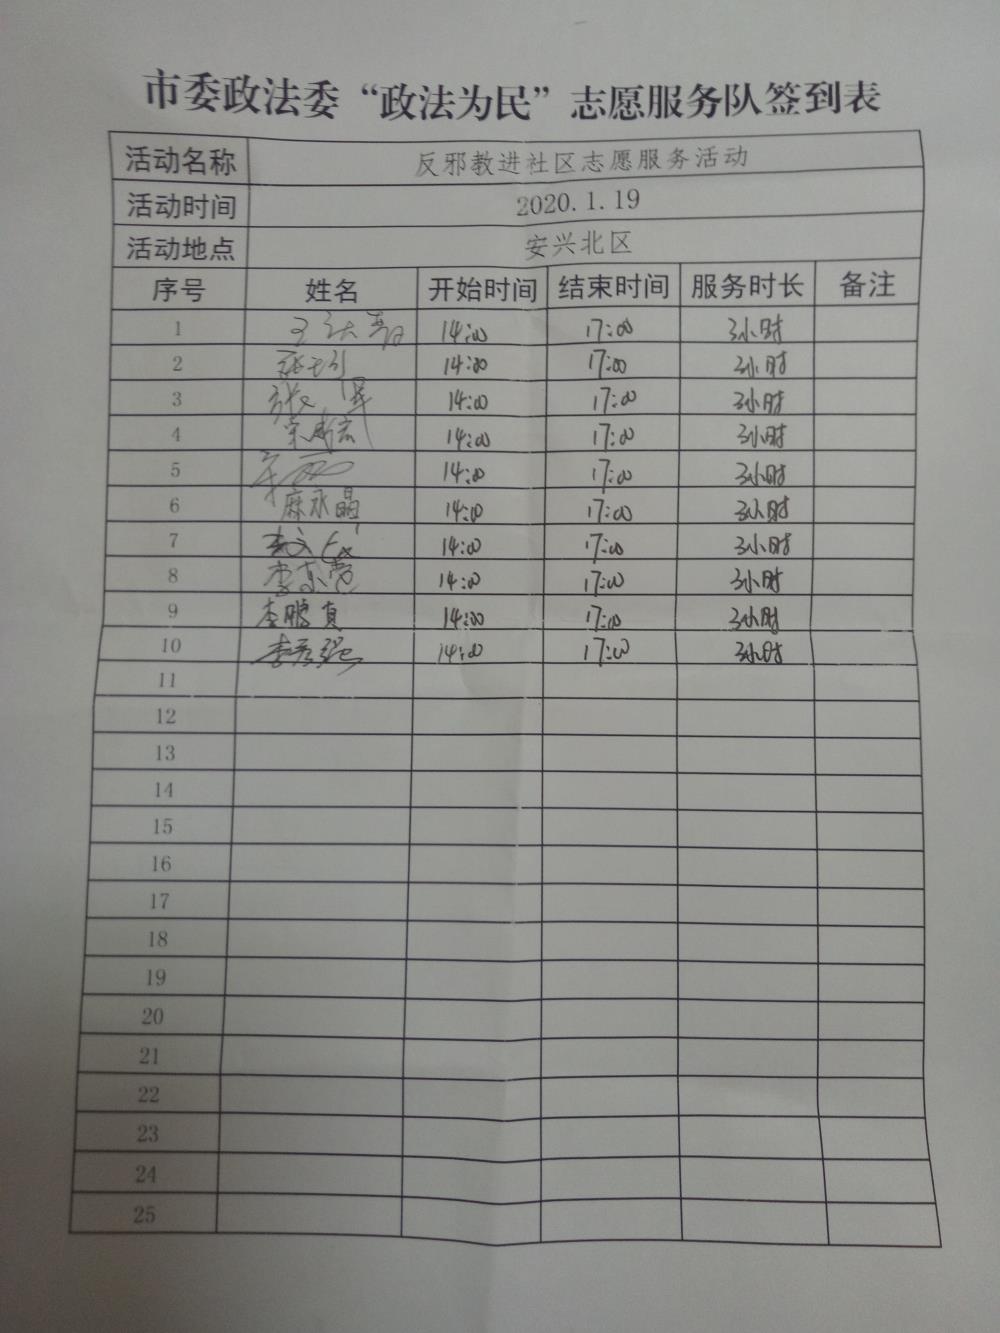 市委政法委“政法为民”志愿服务队签到表
活动名称 反邪教进社区志愿服务活动
活动时间 2020.1.19
活动地点 安兴北区
序号 姓名 开始时间 结束时间 服务时长 备注
1 14:00 17:00 3小时
2 14:00 17:00 3小时
3 14:00 17:00 3小时
4 14:00 17:00 3小时
5 14:00 17:00 3小时
6 麻永晶 14:00 17:00 3小时
7 14:00 17:00 3小时
8 14:00 17:00 3小时
9 李鹏真 14:00 17:00 3小时
10 李彦强 14:00 17:00 3小时
11
12
13
14
15
16
17
18
19
20
21
22
23
24
25